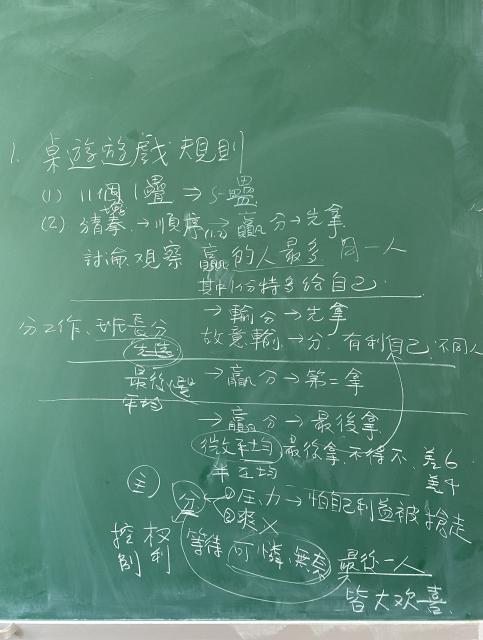 1. 桌遊遊戲規則
(1) 11個1疊 → 5疊
(2) 猜拳 → 順序 → 贏 分 → 先拿
討論、觀察 贏的人最多 同一人
其中1份特多給自己
→ 輸 分 → 先拿
分工作、班長分 故意輸 → 分, 有利自己, 不同人
先選
→ 贏 分 → 第二拿
最後選
平均
→ 贏 分 → 最後拿
微平均 最後拿, 不得不 差6
半平均 差4
主 分 ①压力 → 怕自己利益被搶走
②爽
控制 權利 等待 可憐、無奈 最後一人
皆大欢喜